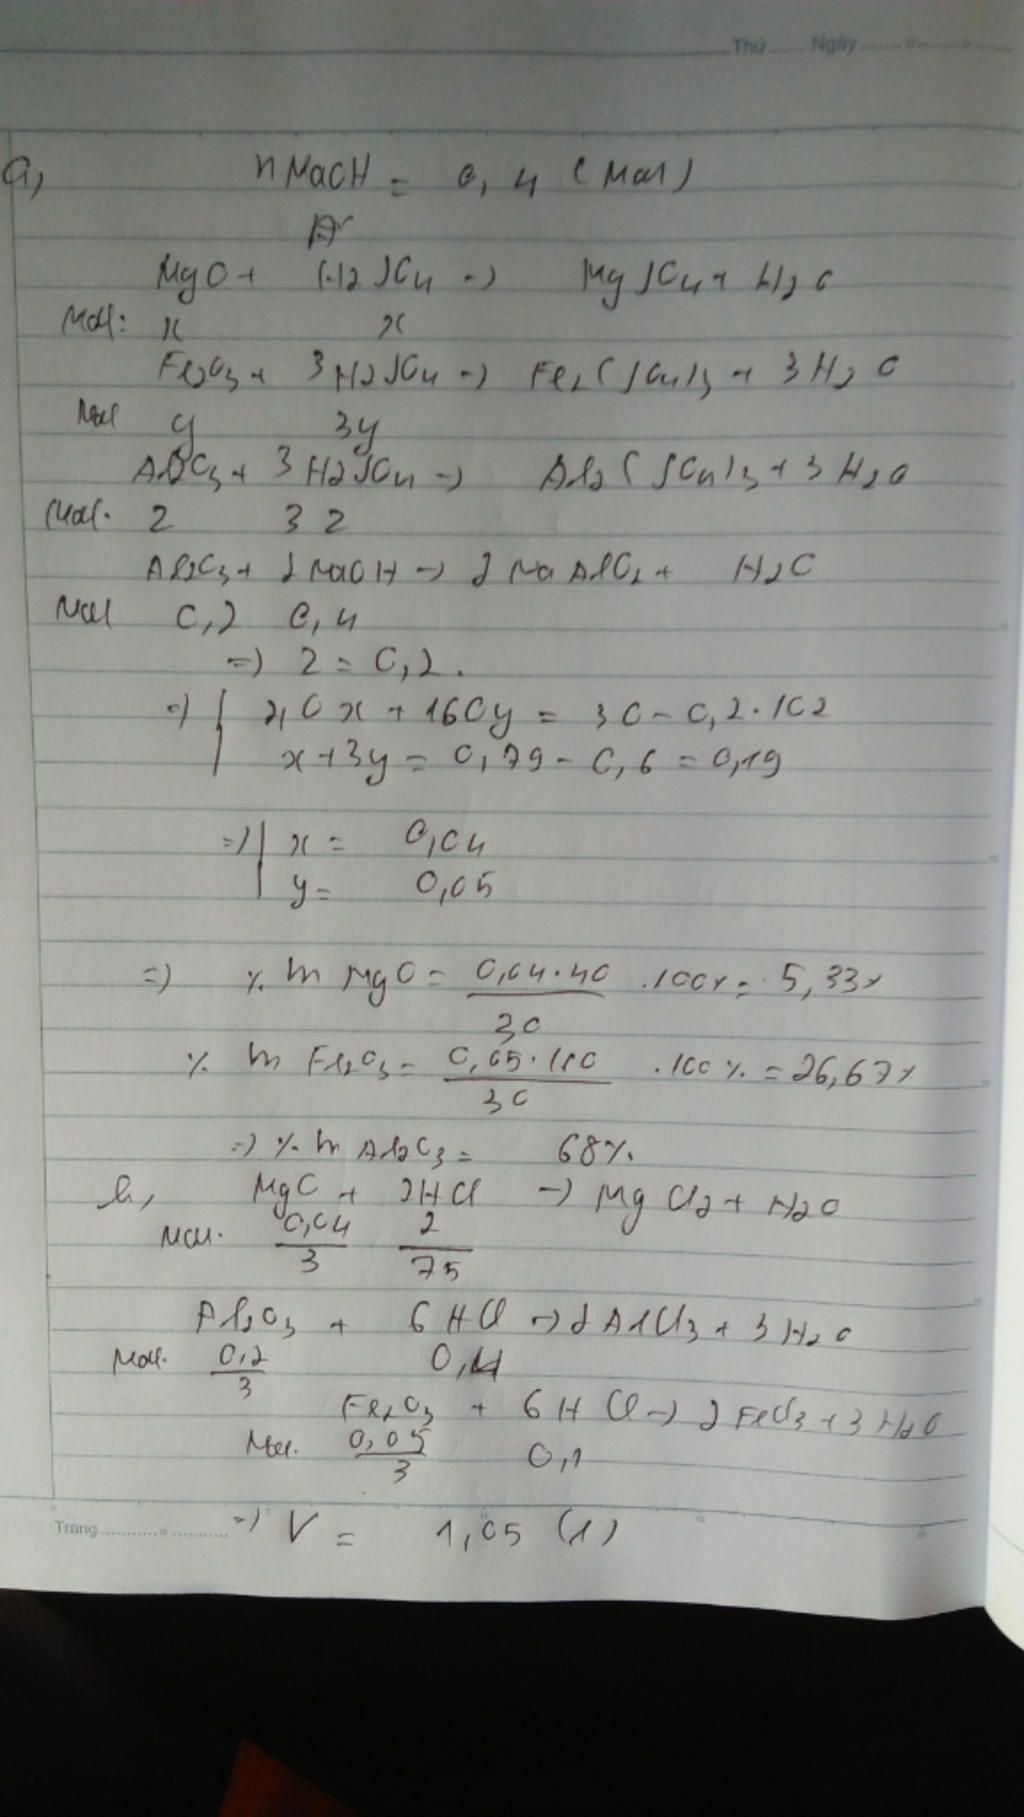 Thứ ...... Ngày ...............
a, nNaOH = 0,4 (mol)
MgO + H2SO4 -> MgSO4 + H2O
Mol: x x
Fe2O3 + 3H2SO4 -> Fe2(SO4)3 + 3H2O
Mol y 3y
Al2O3 + 3H2SO4 -> Al2(SO4)3 + 3H2O
Mol. z 3z
Al2O3 + 2NaOH -> 2NaAlO2 + H2O
Mol 0,2 0,4
=> z = 0,2.
=> 40x + 160y = 30 - 0,2.102
x + 3y = 0,79 - 0,6 = 0,19
=> x = 0,04
y = 0,05
=> % m MgO = 0,04.40/30 .100% = 5,33%
% m Fe2O3 = 0,05.160/30 .100% = 26,67%
=> % m Al2O3 = 68%.
b, MgO + 2HCl -> MgCl2 + H2O
Mol. 0,04/3 2/75
Al2O3 + 6HCl -> 2AlCl3 + 3H2O
Mol. 0,2/3 0,4
Fe2O3 + 6HCl -> 2FeCl3 + 3H2O
Mol. 0,05/3 0,1
=> V = 1,05 (l)
Trang .....................